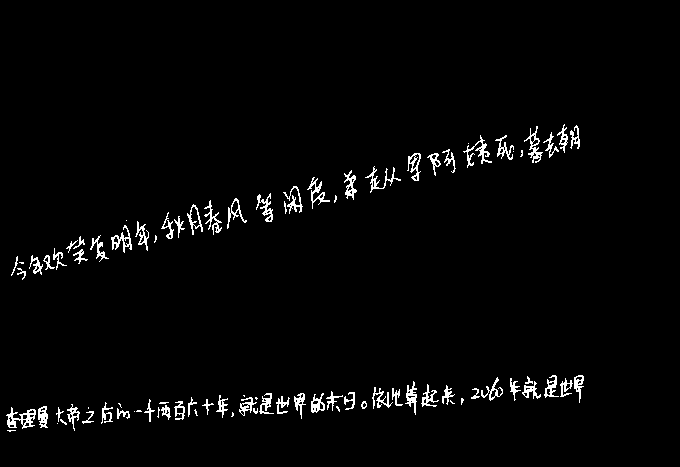 今年欢荣复明年,秋月春风等闲度,弟走从军阿姨死,暮去朝
查理曼大帝之后的一千两百六十年,就是世界的末日。依此算起来,2060年就是世界